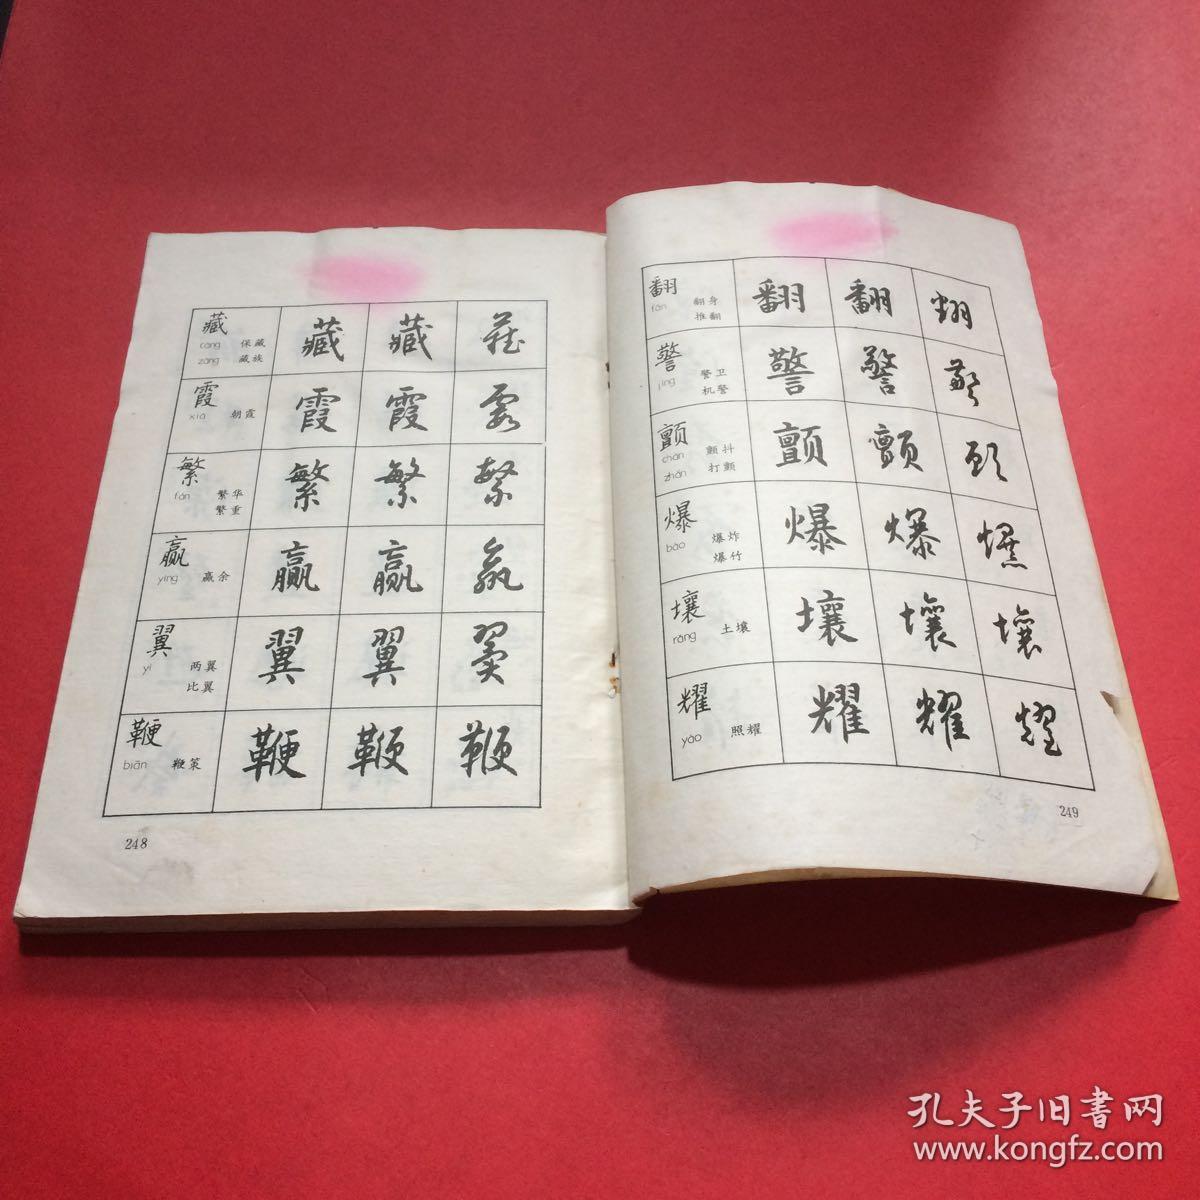 藏 藏 藏 藏
cáng 保藏
zàng 藏族
霞 霞 霞 霞
xiá 朝霞
繁 繁 繁 繁
fán 繁华
繁重
赢 赢 赢 赢
yíng 赢余
翼 翼 翼 翼
yì 两翼
比翼
鞭 鞭 鞭 鞭
biān 鞭策
248
翻 翻 翻 翻
fān 翻身
推翻
警 警 警 警
jǐng 警卫
机警
颤 颤 颤 颤
chàn 颤抖
zhàn 打颤
爆 爆 爆 爆
bào 爆炸
爆竹
壤 壤 壤 壤
rǎng 土壤
耀 耀 耀 耀
yào 照耀
249
孔夫子旧书网
www.kongfz.com